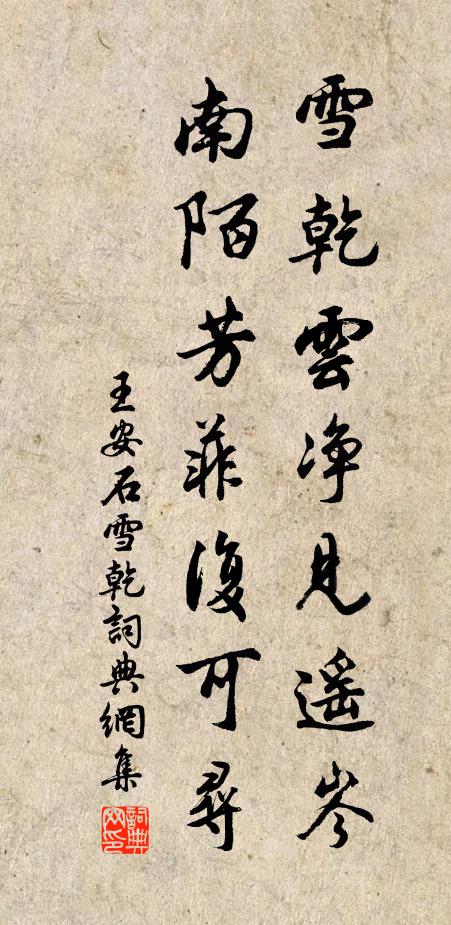 雪乾雲净見遥岑
南陌芳菲復可尋
王安石雪乾詞典網集
詞典網印